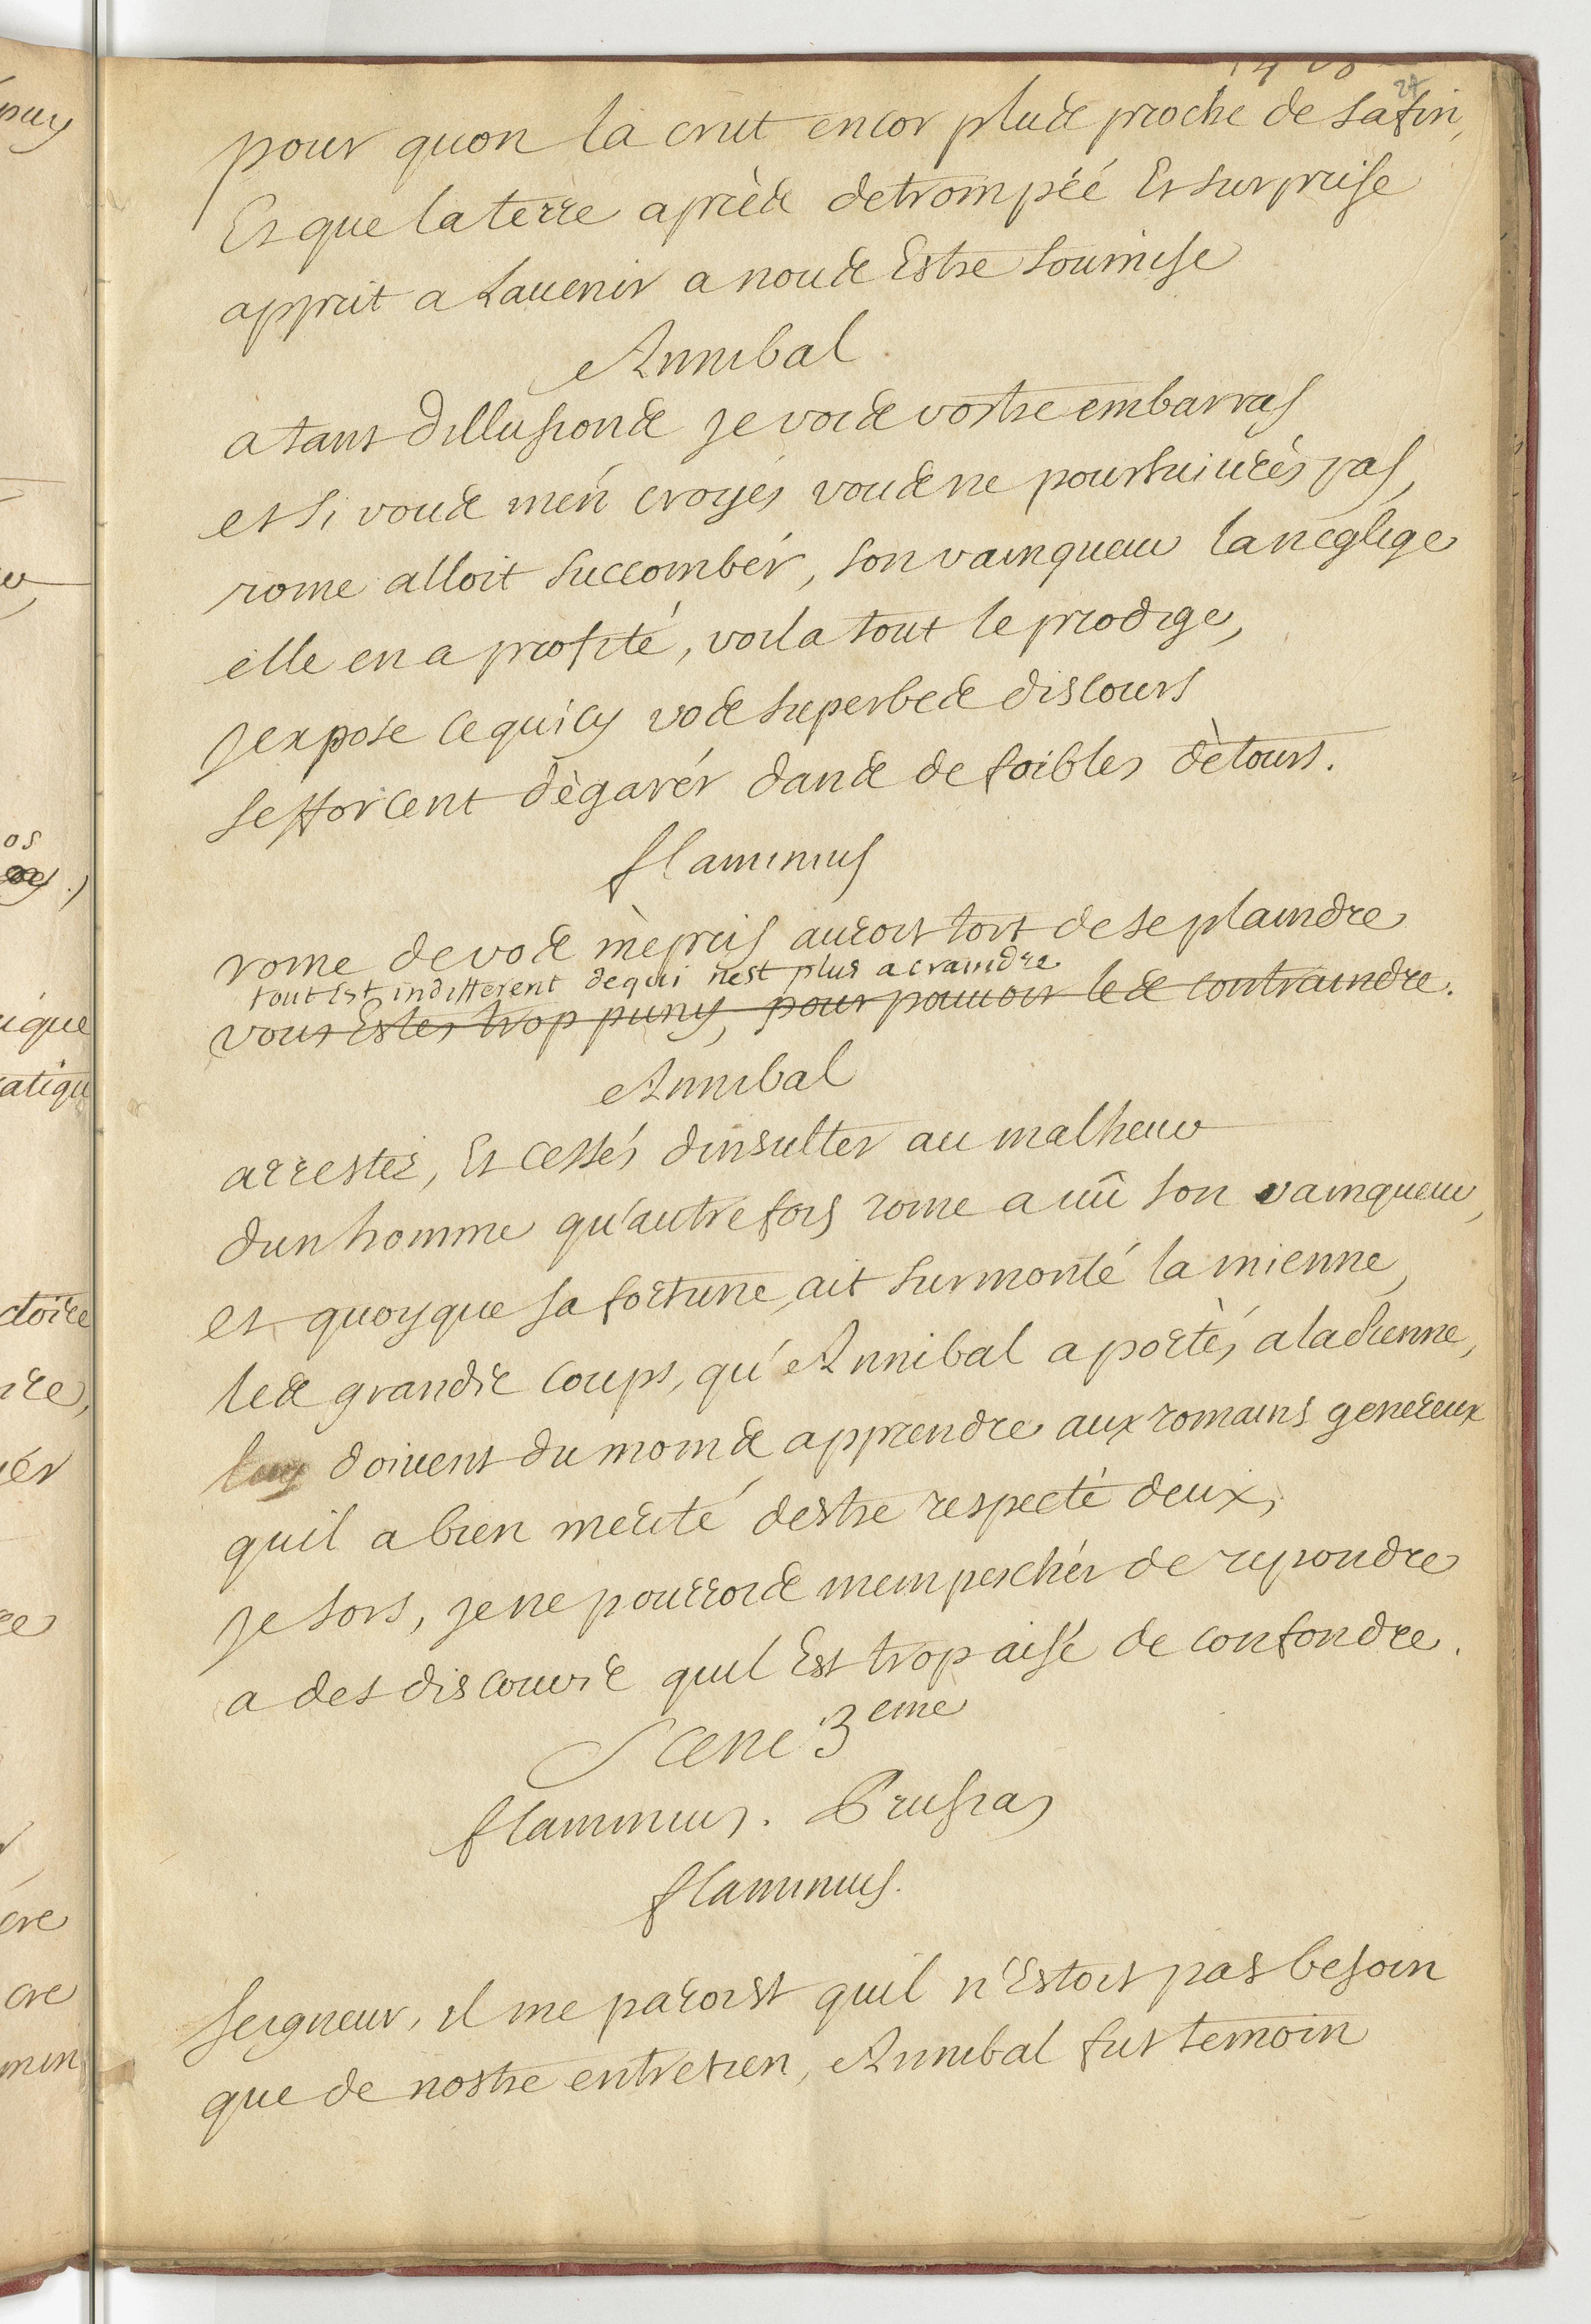 27
pour quon la crut encor plus proche de sa fin,
Et que la terre après detrompéé Et surprise
apprit a Lauenir a nous Estre soumise
Annibal
a tant dillusions je vois vostre embarras
et si vous men croyés vous ne poursuiurés pas,
rome alloit succombér, son vainqueur la neglige
elle en a profité, voila tout le prodige,
jexpose ce quicy vos superbes discours
sefforcent dègarér dans de foibles dètours.
flaminius
rome de vos mèpris auroit tort de se plaindre
tout Est indifferent de qui nest plus a craindre
vous Estes trop puny, pour pouuoir les contraindre.
Annibal
arrestez, Et cessés dinsulter au malheur
dun homme qu'autrefois rome a uû son vainqueur,
et quoyque sa fortune, ait surmonté la mienne,
les grands coups, qu'Annibal a portés a la sienne,
luy doiuent du moins apprendre aux romains genereux
quil a bien merité destre respecté deux,
je sors, je ne pourrois mempeschér de repondre
a des discours quil Est trop aisé de confondre.
Scene 3eme
flaminius. Prusias
flaminius.
seigneur, il me paroist quil n'Estoit pas besoin
que de nostre entretien, Annibal fut temoin